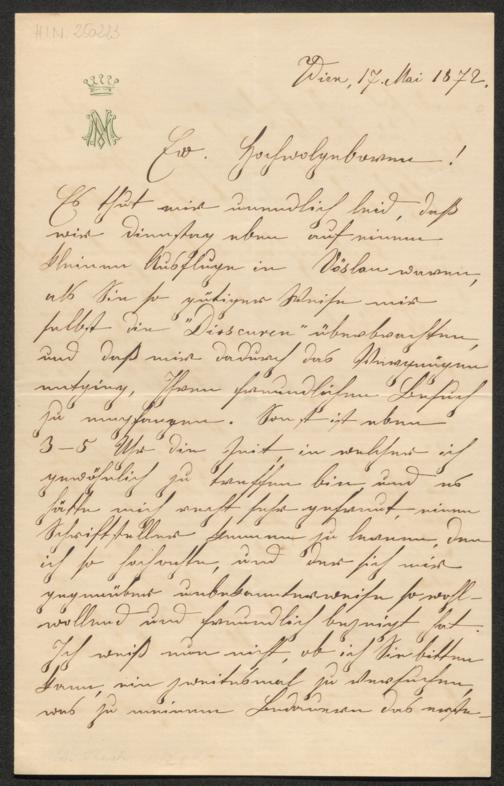 H.I.N. 250223
Wien, 17. Mai 1872.
M
Ew. Hochwolgeboren!
Es thut mir unendlich leid, daß
wir Dienstag eben auf einem
kleinen Ausfluge in Vöslau waren,
als Sie so gütiger Weise mir
selbst die "Dioscuren" überbrachten,
und daß mir dadurch das Vergnügen
entging, Ihren freundlichen Besuch
zu empfangen. Sonst ist eben
3–5 Uhr die Zeit, in welcher ich
gewöhnlich zu treffen bin und es
hätte mich recht sehr gefreut, einen
Schriftsteller kennen zu lernen, den
ich so hochachte, und der sich mir
gegenüber unbekannterweise so wohl-
wollend und freundlich bezeigt hat.
Ich weiß nun nicht, ob ich Sie bitten
kann, ein zweitesmal zu versuchen,
was zu meinem Bedauern das erste-